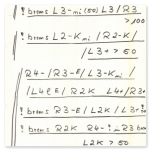 ! brems L3-mi(50) L3/R3
>100
! brems L2-Kmi/R2-K/
/L3+>50
R4-/R3-E/L3-Kmi/
/L4(E/R2K L4+/R3+
! brems R3-E/L2K/L3+
! brems R2K R4-! R3
L2K >50